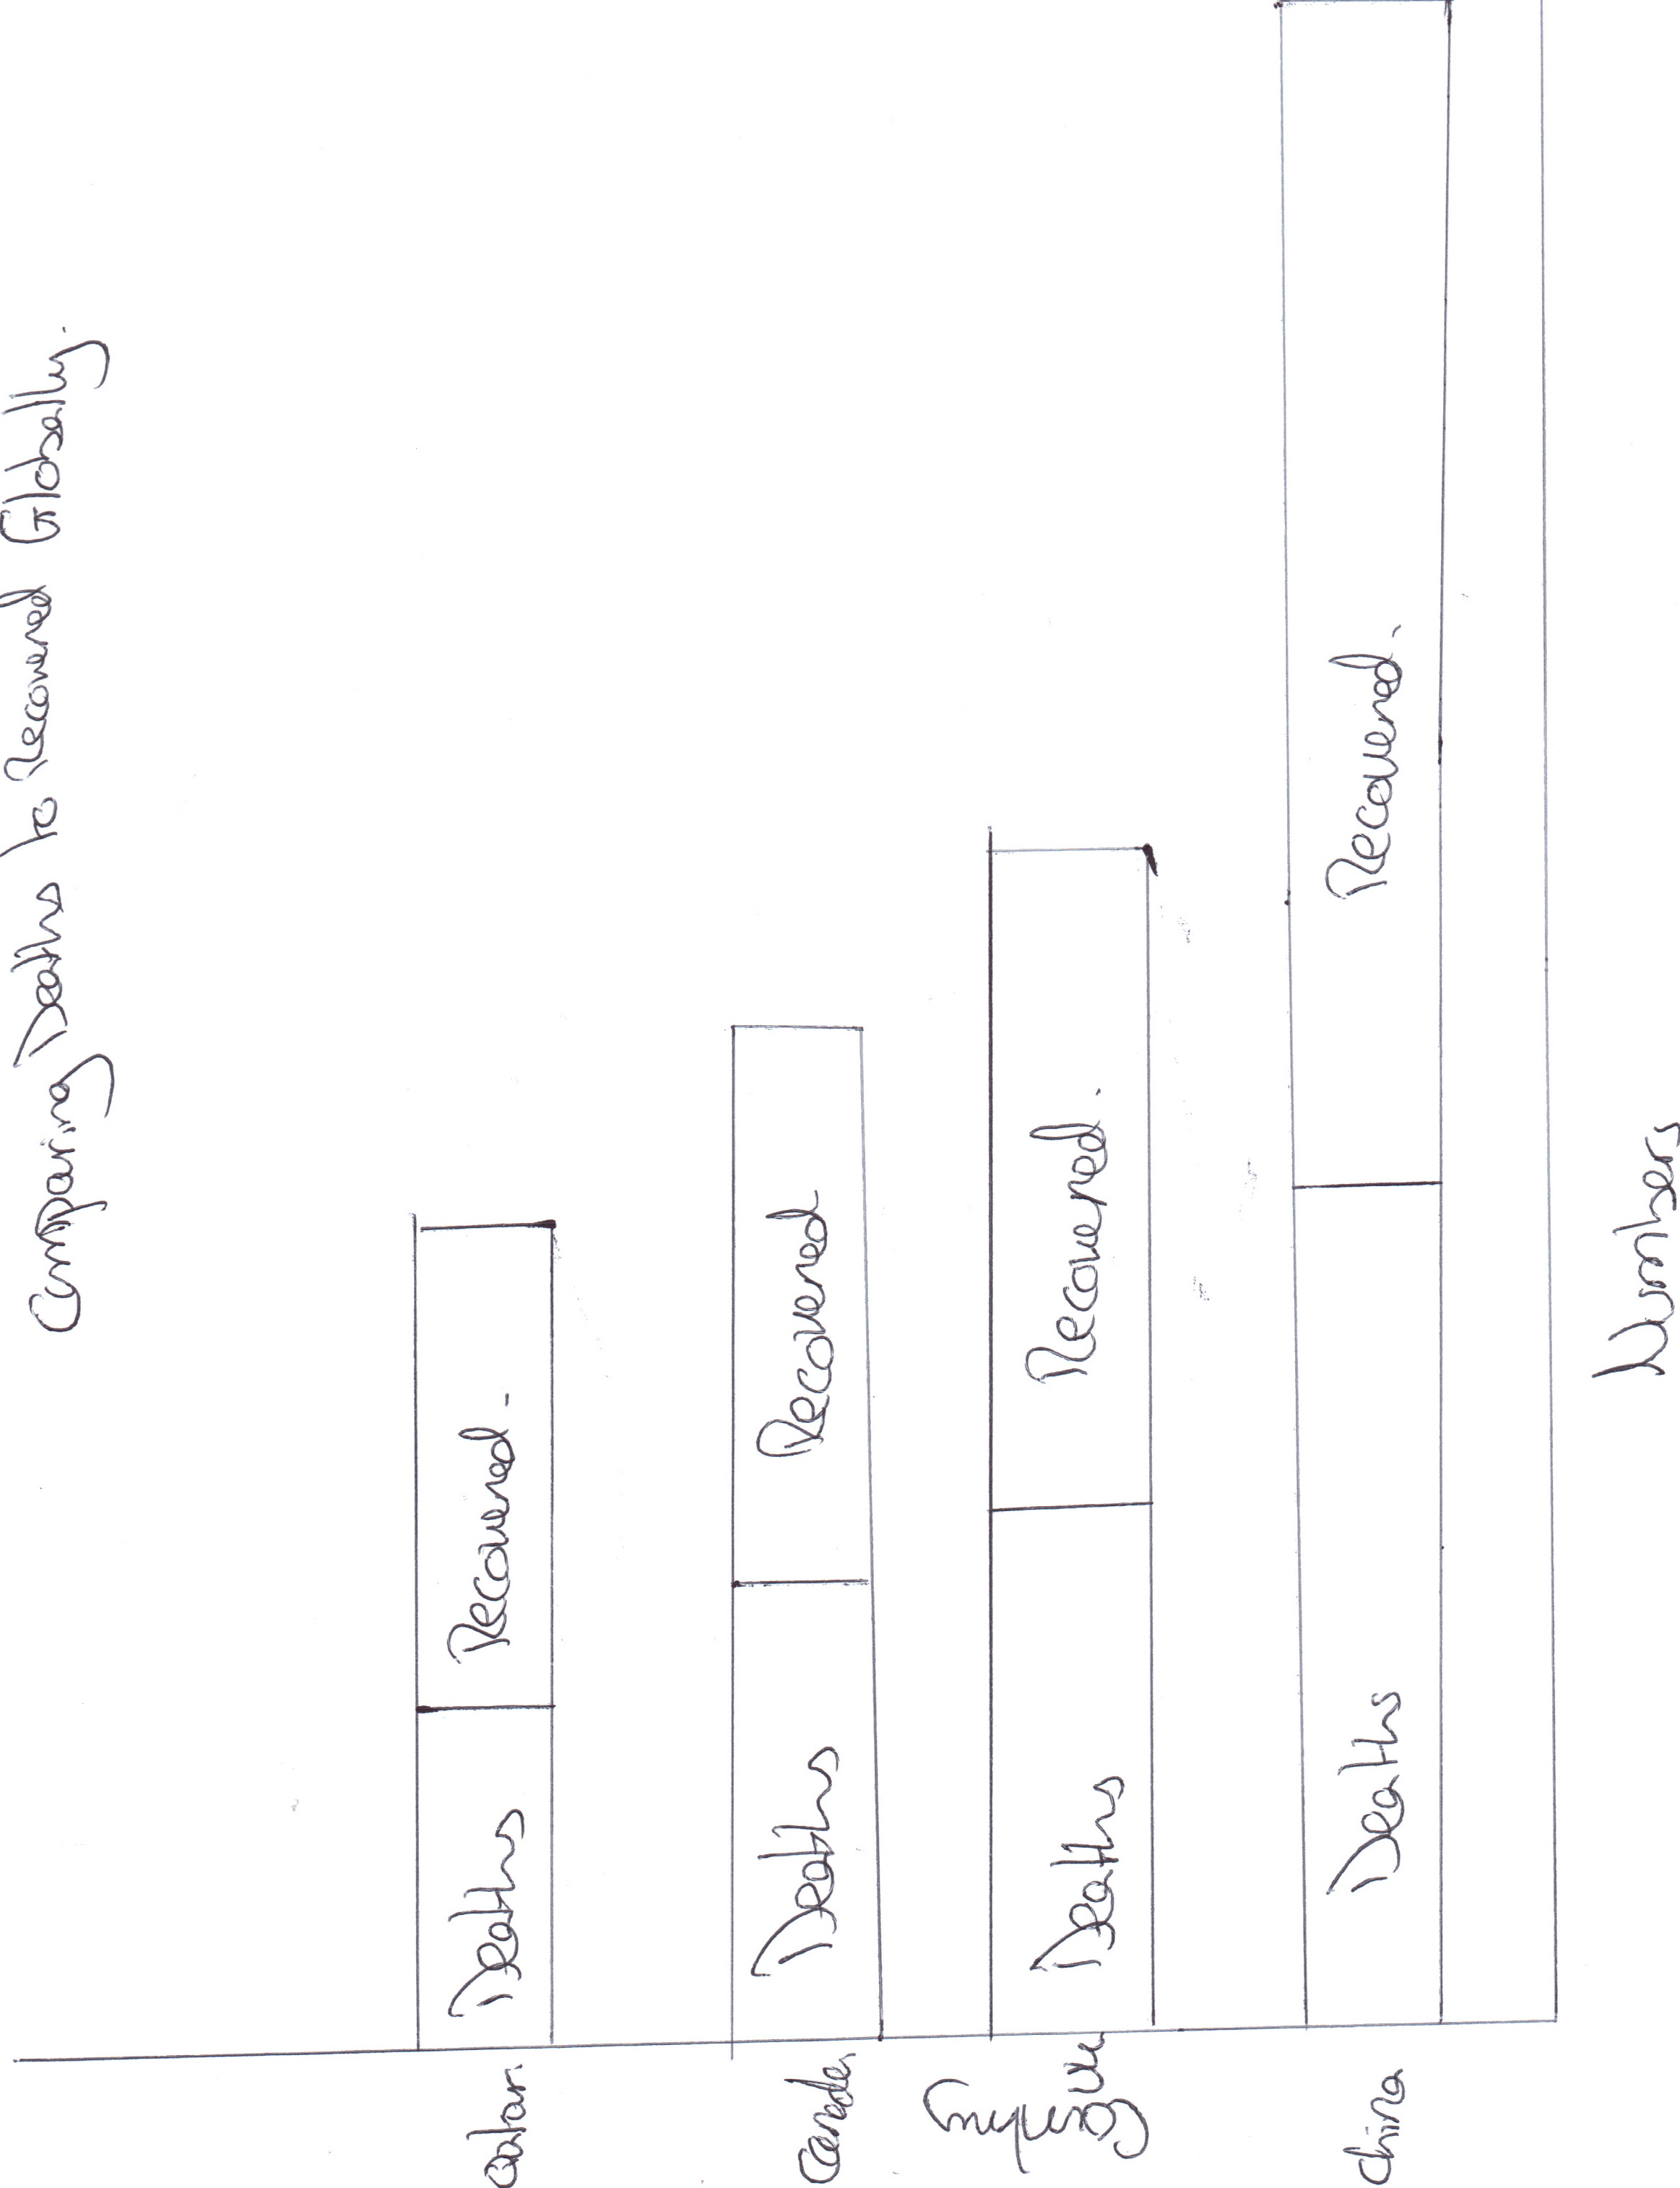 Comparing Deaths to Recovered Globally.
Qatar
Deaths
Recovered
Canada
Deaths
Recovered
Country
UK
Deaths
Recovered.
China
Deaths
Recovered.
Numbers